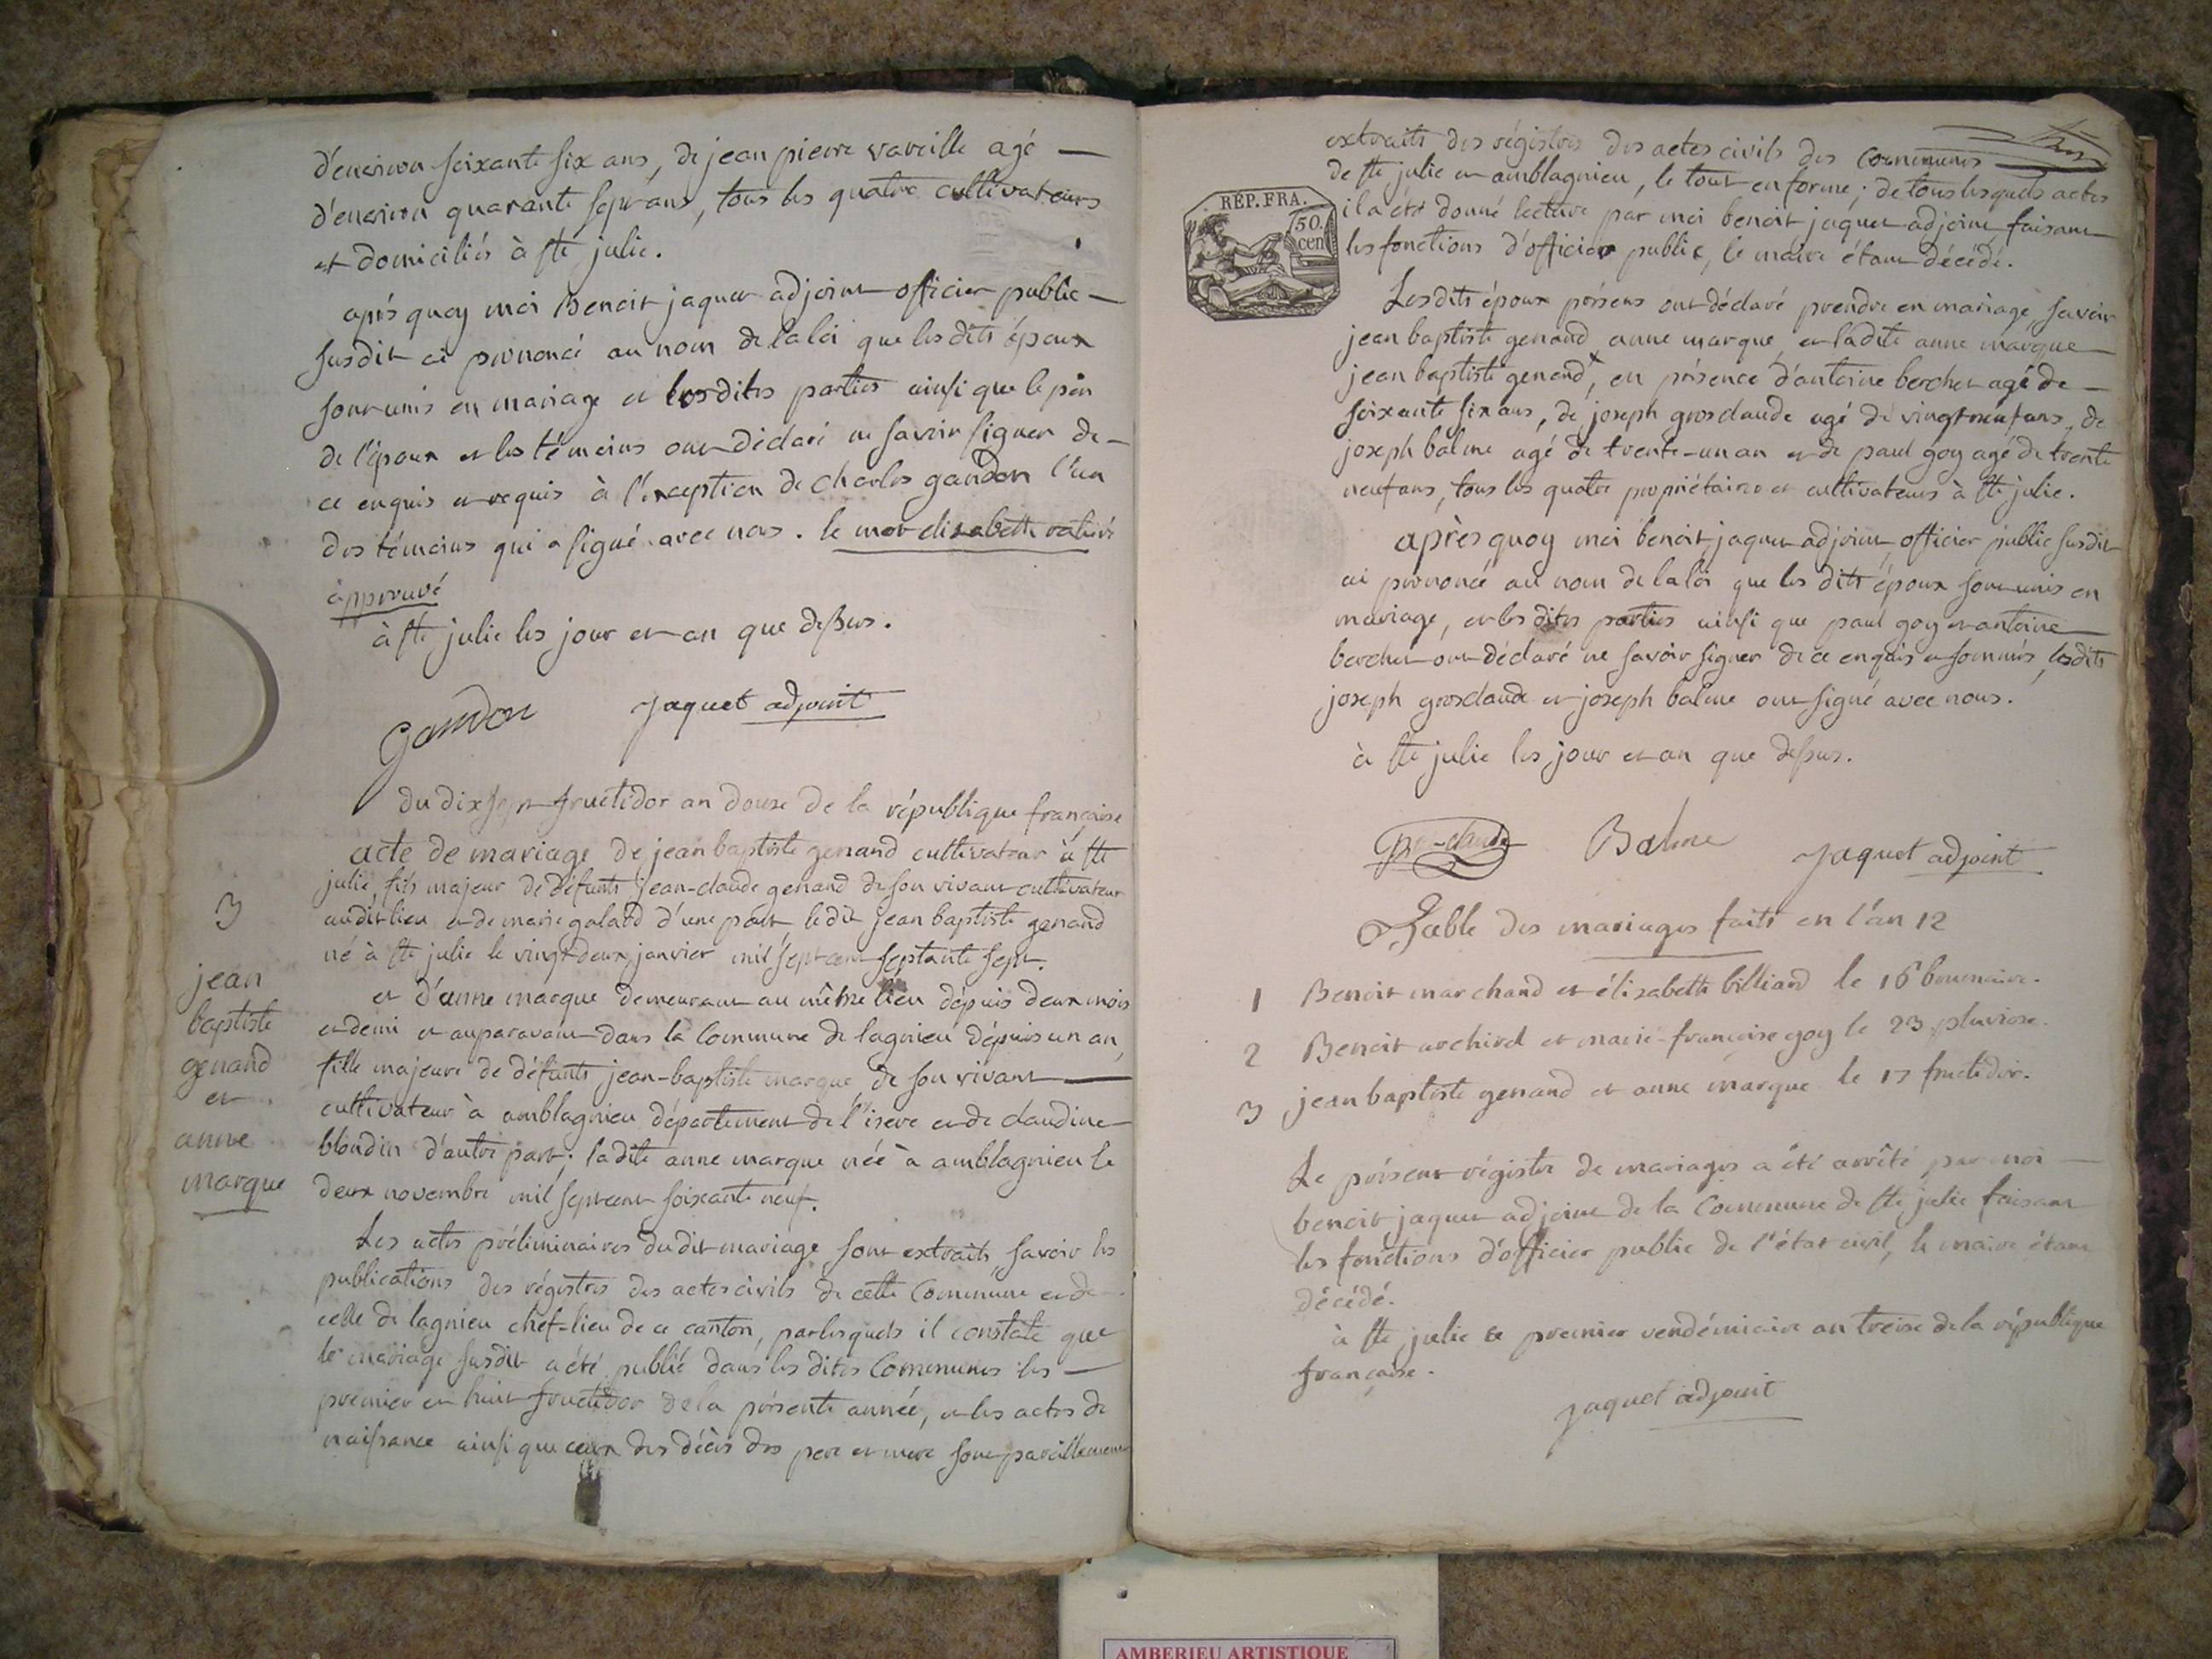 d'environ soixante six ans, de jean pierre vareille agé
d'environ quarante sept ans, tous les quatre cultivateurs
et domiciliés à ste julie.
après quoy moi Benoit jaquet adjoint officier public
susdit ai prononcé au nom de la loi que lesdits époux
sont unis en mariage et lesdites parties ainsi que le père
de l'époux et les témoins ont déclaré ne savoir signer de
ce enquis et requis à l'exception de charles gandon l'un
des témoins qui a signé avec nous. le mot elisabeth
approuvé
à ste julie les jour et an que dessus.
Gandon Jaquet adjoint
du dix sept fructidor an douze de la république française
acte de mariage de jean baptiste genand cultivateur à ste
julie, fils majeur de défunts jean-claude genand de son vivant cultivateur
audit lieu et de marie galand d'une part, ledit jean baptiste genand
né à ste julie le vingt deux janvier mil sept cent septante sept.
3
jean
baptiste
genand
et
anne
marque
et d'anne marque demeurant au même lieu dépuis deux mois
et demi et auparavant dans la Commune de lagnieu dépuis un an,
fille majeure de défunts jean-baptiste marque, de son vivant
cultivateur à amblagnieu département de l'isere et de claudine
blondin d'autre part; ladite anne marque née à amblagnieu le
deux novembre mil sept cent soixante neuf.
Les actes préliminaires dudit mariage sont extraits, savoir les
publications des régistres des actes civils de cette Commune et de
celle de lagnieu chef-lieu de ce canton, par lesquels il constate que
le mariage susdit a été publié dans les dites Communes les
premier et huit fructidor de la présente année, et les actes de
naissance ainsi que ceux des décès des pere et mere sont pareillement
extraits des régistres des actes civils des Communes
de ste julie et amblagnieu, le tout en forme; de tous lesquels actes
il a été donné lecture par moi benoit jaquet adjoint faisant
les fonctions d'officier public, le maire étant décédé.
RÉP. FRA.
50.
cen
Lesdits époux présens ont déclaré prendre en mariage, savoir
jean baptiste genand anne marque, et ladite anne marque
jean baptiste genand, en présence d'antoine berchet agé de
soixante six ans, de joseph grosclaude agé de vingt neuf ans, de
joseph balme agé de trente-un an et de paul goy agé de trente
neuf ans, tous les quatre propriétaires et cultivateurs à ste julie.
après quoy moi benoit jaquet adjoint, officier public susdit
ai prononcé au nom de la loi que les dits époux sont unis en
mariage, et les dites parties ainsi que paul goy et antoine
berchet ont déclaré ne savoir signer de ce enquis et sommés, lesdits
joseph grosclaude et joseph balme ont signé avec nous.
à ste julie les jour et an que dessus.
gros-claude Balme Jaquet adjoint
Table des mariages faits en l'an 12
1 Benoit marchand et élisabeth billiard le 16 brumaire.
2 Benoit archird et marie-françoise goy le 23 pluviose.
3 jean baptiste genand et anne marque le 17 fructidor.
Le présent régistre de mariages a été arrêté par moi
benoit jaquet adjoint de la Commune de ste julie faisant
les fonctions d'officier public de l'état civil, le maire étant
décédé.
à ste julie le premier vendémiaire an treize de la république
française.
jaquet adjoint
AMBERIEU ARTISTIQUE